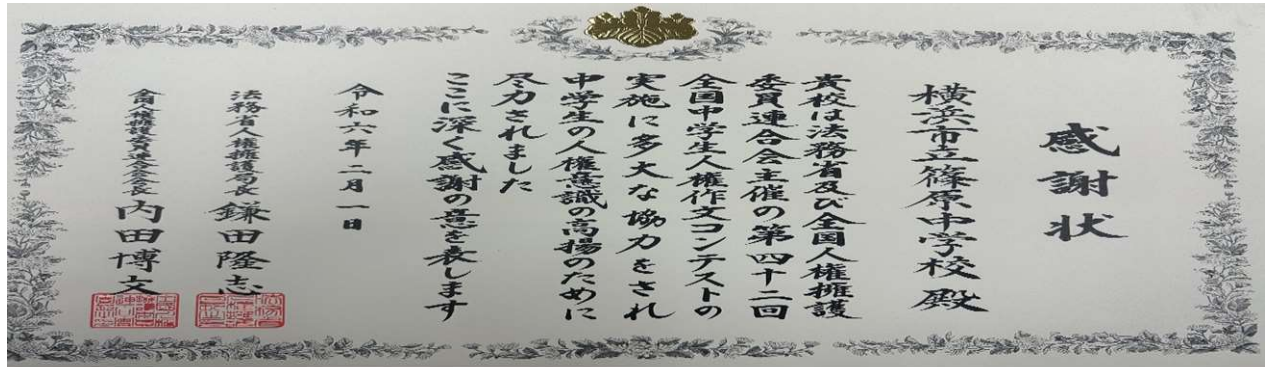 感謝状
横浜市立篠原中学校殿
貴校は法務省及び全国人権擁護
委員連合会主催の第四十二回
全国中学生人権作文コンテストの
実施に多大な協力をされ
中学生の人権意識の高揚のために
尽力されました
ここに深く感謝の意を表します
令和六年二月一日
法務省人権擁護局長 鎌田隆志
全国人権擁護委員連合会会長 内田博文